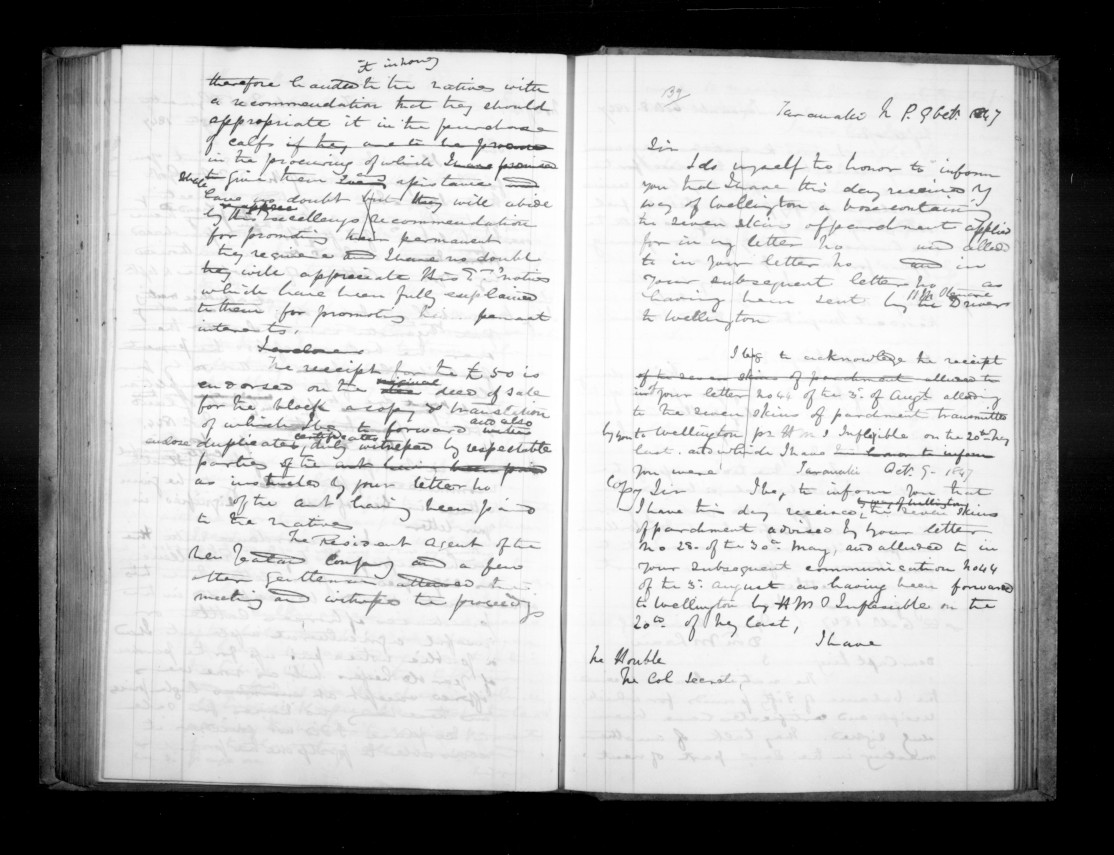 therefore handed to the natives with
a recommendation that they should
appropriate it in the purchase
of calfs if they are to be
in the procuring of which I was
to give them assistance and
have no doubt but they will abide
by this Excellencys recommendation
for promoting their permanent
they require and I have no doubt
they will appreciate His
which have been fully explained
to them for promoting his
interests.
The receipt for the £50 is
endorsed on the original deed of sale
for the block a copy & translation
of which I beg to forward and also
duplicates certificates duly witnessed by respectable
parties of the amt having been paid
as instructed by your letter no
of the amt having been paid
to the natives
The Resident Agent of the
New Zealand Company and a few
other gentlemen attended the
meeting and witness the proceedings
139/
Taranaki N P. 9 Oct. 1847
Sir
I do myself the honor to inform
you that I have this day received by
way of Wellington a box containing
the seven skins of parchment applied
for in my letter No and alluded
to in your letter no and in
your subsequent letter no as
having been sent by the
to Wellington
I beg to acknowledge the receipt
of the seven skins of parchment alluded to
of your letter No 44 of the 3d of Augt alluding
to the seven skins of parchment transmitted
by you to Wellington pr H M S Inflexible on the 20th
last. and which I have honor to inform
you were Taranaki Oct 9 - 1847
Copy Sir I beg to inform you that
I have this day received by way of Wellington the seven skins
of parchment advised by your letter
No 28. of the 30th May, and alluded to in
your subsequent communication No 44
of the 3d August as having been forwarded
to Wellington by H M S Inflexible on the
20th of last,
I have
The Honble
The Col Secrety